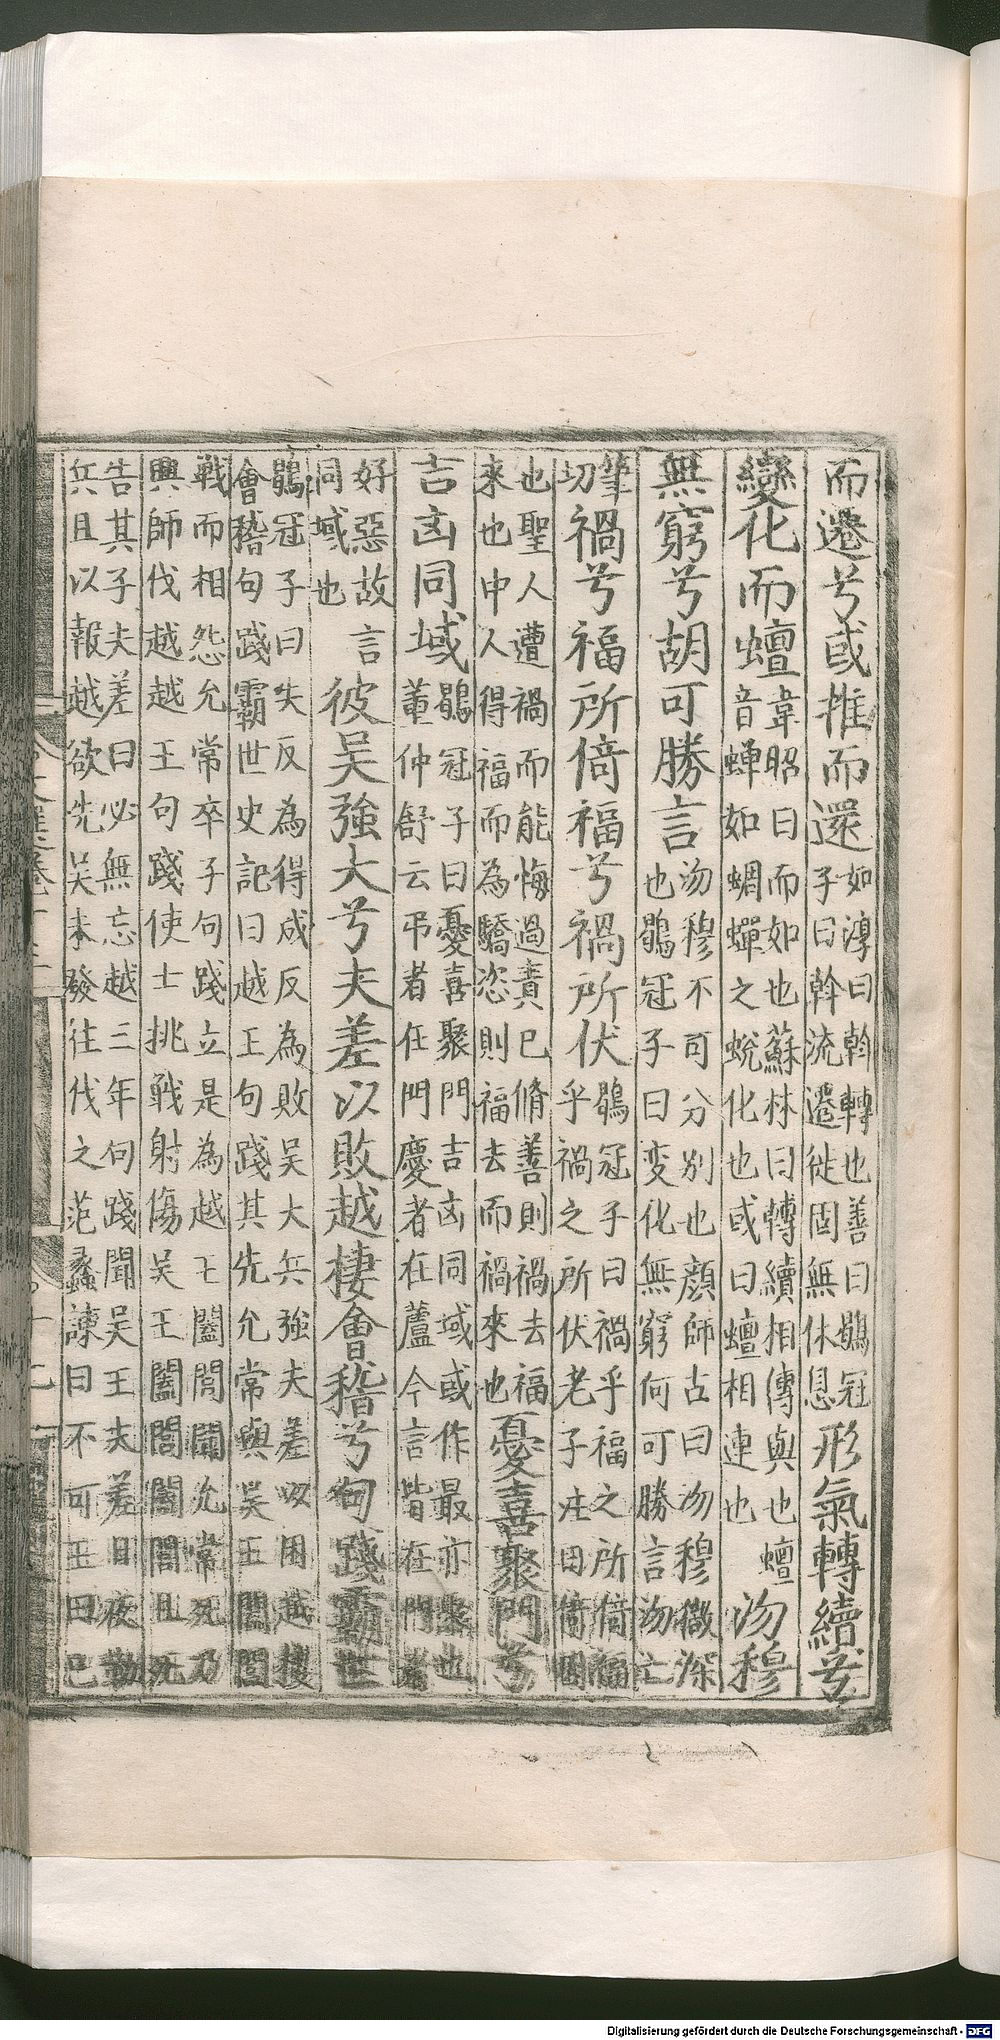 而遷兮或推而還如淳曰斡轉也善曰鶡冠子曰斡流遷徙固無休息形氣轉續兮
變化而蟺韋昭曰而如也蘇林曰轉續相傳與也蟺音蟬如蜩蟬之蛻化也或曰蟺相連也沕穆
無窮兮胡可勝言沕穆不可分別也顏師古曰沕穆微深也鶡冠子曰变化無窮何可勝言沕亡
筆切禍兮福所倚福兮禍所伏鶡冠子曰禍乎福之所倚福乎禍之所伏老子注曰倚因
也聖人遭禍而能悔過責己脩善則禍去福來也中人得福而為驕恣則福去而禍來也憂喜聚門兮
吉凶同域鶡冠子曰憂喜聚門吉凶同域或作最亦聚也董仲舒云弔者在門慶者在廬今言皆在門者
好惡故言同域也彼吳強大兮夫差以敗越棲會稽兮句踐霸世
鶡冠子曰失反為得成反為敗吳大兵強夫差以困越棲
會稽句踐霸世史記曰越王句踐其先允常與吳王闔閭
戰而相怨允常卒子句踐立是為越王闔閭聞允常死乃
興師伐越越王句踐使士挑戰射傷吳王闔閭闔閭且死
告其子夫差曰必無忘越三年句踐聞吳王夫差日夜勒
兵且以報越欲先吳未發往伐之范蠡諫曰不可王曰已
Digitalisierung gefördert durch die Deutsche Forschungsgemeinschaft - DFG